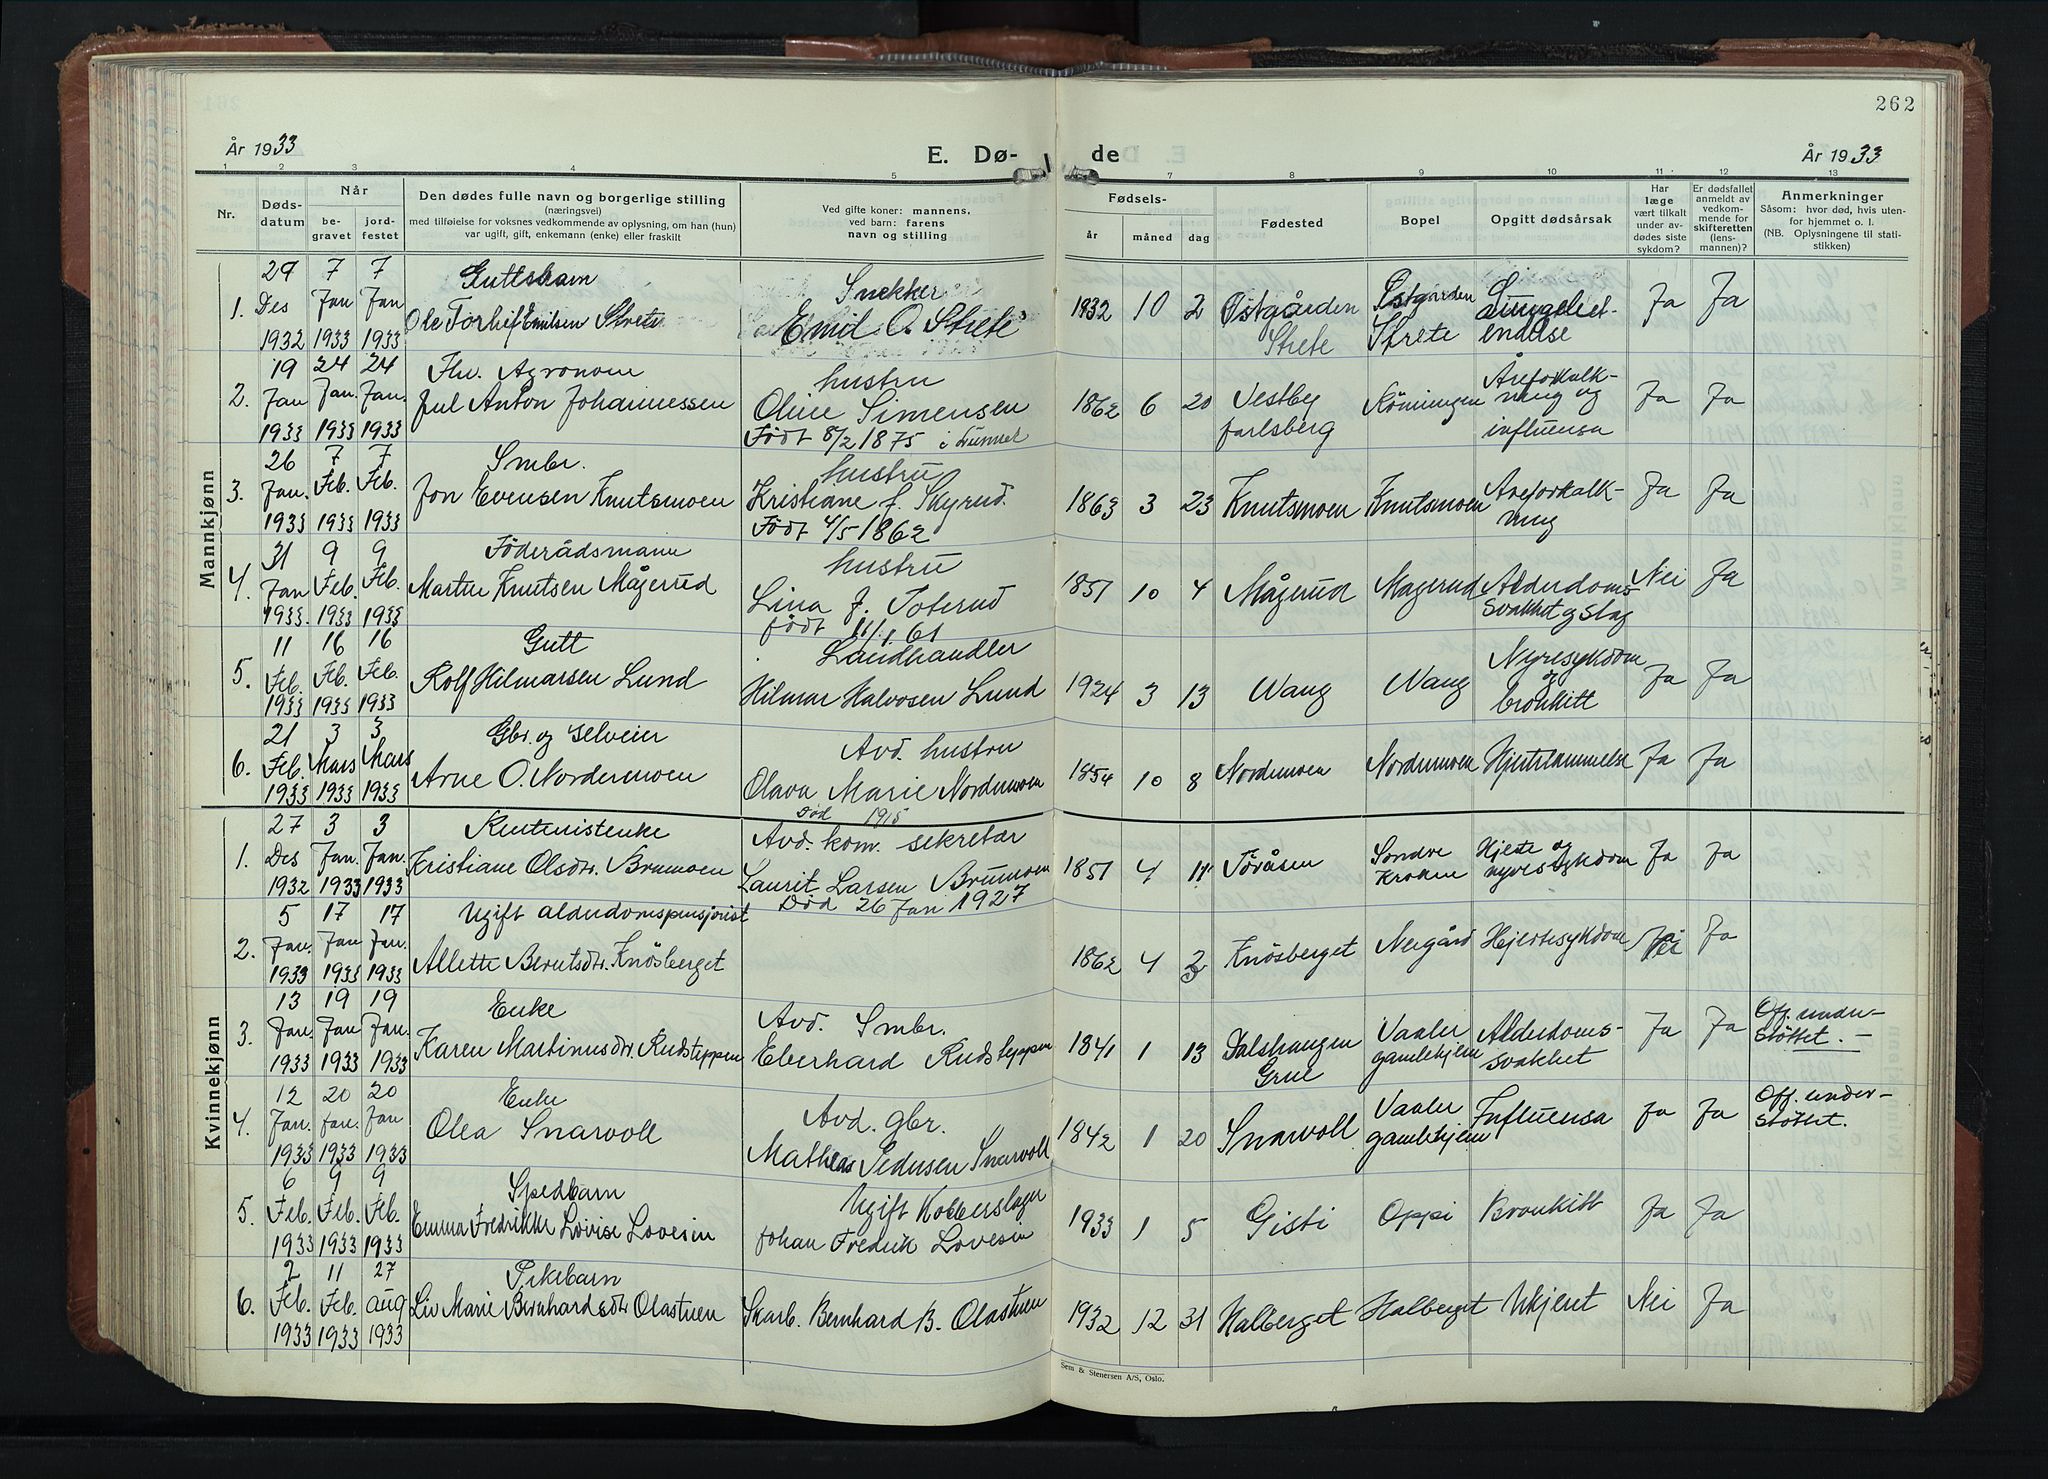 262
År 1933
E. Dø-
de
År 1933
1 2 3 4 5 7 8 9 10 11 12 13
Nr.
Døds-
datum
Når
be-
gravet
jord-
festet
Den dødes fulle navn og borgerlige stilling
(næringsvei)
med tilføielse for voksnes vedkommende av oplysning, om han (hun)
var ugift, gift, enkemann (enke) eller fraskilt
Ved gifte koner: mannens,
ved barn: farens
navn og stilling
Fødsels-
år
måned
dag
Fødested
Bopel
Opgitt dødsårsak
Har
læge
vært tilkalt
under av-
dødes siste
sykdom?
Er dødsfallet
anmeldt av
vedkom-
mende for
skifteretten
(lens-
mannen)?
Anmerkninger
Såsom: hvor død, hvis uten-
for hjemmet o. l.
(NB. Oplysningene til stati-
stikken)
Mannkjønn
29 7 7 Guttebarn Snekker
1. Des Jan Jan Ole Torleif Emilsen Strete Emil O. Strete 1932 10 2 Østgården Østgården Lungebet- Ja Ja
1932 1933 1933 Strete Strete endelse
19 24 24 Fhv. Agronom hustru Åreforkalk-
2. Jan Jan. Jan. Juul Anton Johannessen Oline Simensen 1862 6 20 Vestby Könningen ning og Ja Ja
1933 1933 1933 Født 8/2 1875 i Lunner Jarlsberg influensa
26 7 7 Smbr. hustru
3. Jan. Feb. Feb. Jon Evensen Knutsmoen Kristiane f. Skyrud. 1863 3 23 Knutsmoen Knutsmoen Åreforkalk- Ja Ja
1933 1933 1933 Født 4/5 1862 ning
31 9 9 Föderådsmann hustru
4. Jan Feb. Feb. Martin Knutsen Mågerud Lina f. Toterud 1851 10 4 Mågerud Magerud Alderdoms- Nei Ja
1933. 1933 1933 født 11/1 61 svakhet og slag
11 16 16 Gutt Landhandler Nyresykdom
5. Feb. Feb. Feb. Rolf Hilmarsen Lund Hilmar Halvosen Lund 1924 3 13 Vang Vang og Ja Ja
1933 1933 1933 bronkitt
21 3 3 Gbr. og selveier Avd. hustru
6. Feb. Mars Mars Arne O. Nordermoen Olava Marie Nordermoen 1854 10 8 Nordermoen Nordermoen Hjertelammelse Ja Ja
1933 1933 1933 Død 1915
Kvinnekjønn
27 3 3 Rentenistenke Avd. kom. sekretær
1. Des Jan. Jan. Kristiane Olsdtr. Brumoen Laurit Larsen Brumoen 1851 4 11 Töråsen Sondre Hjerte og Ja Ja
1932 1933 1933 Død 26 Jan 1927 Kroken nyresykdom
5 17 17 Ugift alderdomspensjonist
2. Jan. Jan Jan. Allette Berntsdtr. Knösberget 1862 4 Knösberget Neigård Hjertesykdom Nei Ja
1933 1933 1933
13 19 19 Enke Avd. Smbr. Off. under-
3. Jan. Jan Jan. Karen Martinusdtr. Rudsteppen Eberhard Rudsteppen 1841 1 13 Dalshaugen Vaaler Alderdoms- Ja Ja støttet. -
1933 1933 1933 Grue gamlehjem svakhet
12 20 20 Enke Avd. gbr. Off. under-
4. Jan. Jan. Jan Olea Snarvoll Mathias Pedersen Snarvoll 1842 1 20 Snarvoll Vaaler Influensa Ja Ja støttet.
1933 1933 1933 gamlehjem
6 9 9 Spedbarn Ugift Kobberslager
5. Feb. Feb. Feb. Emma Fredrikke Lovise Lovesin Johan Fredrik Lovesin 1933 1 5 Gisti Oppi Bronkitt Ja Ja
1933 1933 1933
2 11 27 Pikebarn
6. Feb. Feb. aug Liv Marie Bernhardsdtr Olastuen Skarb. Bernhard B. Olastuen 1932 12 31 Halberget Halberget Ukjent Nei Ja
1933 1933 1933
Sem & Stenersen A/S, Oslo.